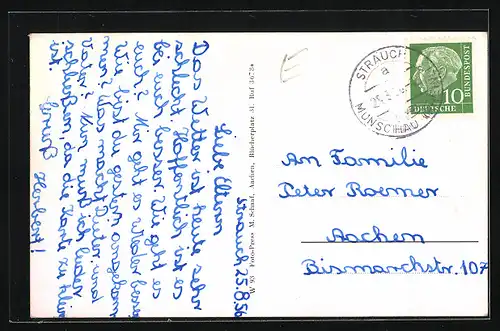 Strauch 25.8.56
Liebe Eltern
Das Wetter ist heute sehr
schlecht. Hoffentlich ist es
bei euch besser. Wie geht es
euch? Mir geht es wieder besser
Wie bist du gestern angekom
men? Was macht Dieter und
Vater? Nun muß ich leider
schließen da die Karte zu klein
ist. Gruß Herbert!
W 93 Foto-Press M. Schaaf, Aachen,
STRAUCH
a
MONSCHAU
DEUTSCHE BUNDESPOST
10
An Familie
Peter Roemer
Aachen
Bismarckstr. 107